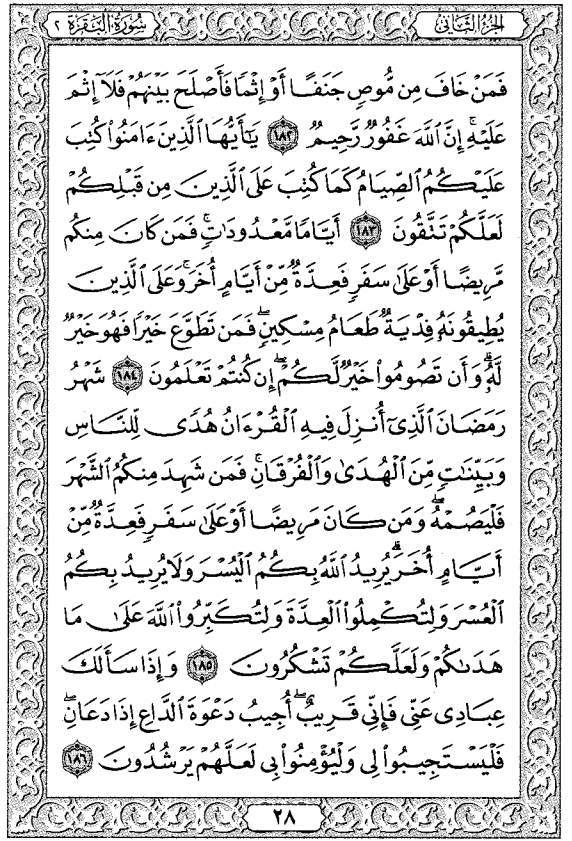 سُورَةُ البَقَرَةِ ٢
الجُزْءُ الثَّانِي
فَمَنْ خَافَ مِن مُّوصٍ جَنَفًا أَوْ إِثْمًا فَأَصْلَحَ بَيْنَهُمْ فَلَآ إِثْمَ
عَلَيْهِ ۚ إِنَّ ٱللَّهَ غَفُورٌ رَّحِيمٌ ١٨٢ يَـٰٓأَيُّهَا ٱلَّذِينَ ءَامَنُوا۟ كُتِبَ
عَلَيْكُمُ ٱلصِّيَامُ كَمَا كُتِبَ عَلَى ٱلَّذِينَ مِن قَبْلِكُمْ
لَعَلَّكُمْ تَتَّقُونَ ١٨٣ أَيَّامًا مَّعْدُودَٰتٍ ۚ فَمَن كَانَ مِنكُم
مَّرِيضًا أَوْ عَلَىٰ سَفَرٍ فَعِدَّةٌ مِّنْ أَيَّامٍ أُخَرَ ۚ وَعَلَى ٱلَّذِينَ
يُطِيقُونَهُۥ فِدْيَةٌ طَعَامُ مِسْكِينٍ ۖ فَمَن تَطَوَّعَ خَيْرًا فَهُوَ خَيْرٌ
لَّهُۥ ۚ وَأَن تَصُومُوا۟ خَيْرٌ لَّكُمْ ۖ إِن كُنتُمْ تَعْلَمُونَ ١٨٤ شَهْرُ
رَمَضَانَ ٱلَّذِىٓ أُنزِلَ فِيهِ ٱلْقُرْءَانُ هُدًى لِّلنَّاسِ
وَبَيِّنَـٰتٍ مِّنَ ٱلْهُدَىٰ وَٱلْفُرْقَانِ ۚ فَمَن شَهِدَ مِنكُمُ ٱلشَّهْرَ
فَلْيَصُمْهُ ۖ وَمَن كَانَ مَرِيضًا أَوْ عَلَىٰ سَفَرٍ فَعِدَّةٌ مِّنْ
أَيَّامٍ أُخَرَ ۗ يُرِيدُ ٱللَّهُ بِكُمُ ٱلْيُسْرَ وَلَا يُرِيدُ بِكُمُ
ٱلْعُسْرَ وَلِتُكْمِلُوا۟ ٱلْعِدَّةَ وَلِتُكَبِّرُوا۟ ٱللَّهَ عَلَىٰ مَا
هَدَىٰكُمْ وَلَعَلَّكُمْ تَشْكُرُونَ ١٨٥ وَإِذَا سَأَلَكَ
عِبَادِى عَنِّى فَإِنِّى قَرِيبٌ ۖ أُجِيبُ دَعْوَةَ ٱلدَّاعِ إِذَا دَعَانِ ۖ
فَلْيَسْتَجِيبُوا۟ لِى وَلْيُؤْمِنُوا۟ بِى لَعَلَّهُمْ يَرْشُدُونَ ١٨٦
٢٨